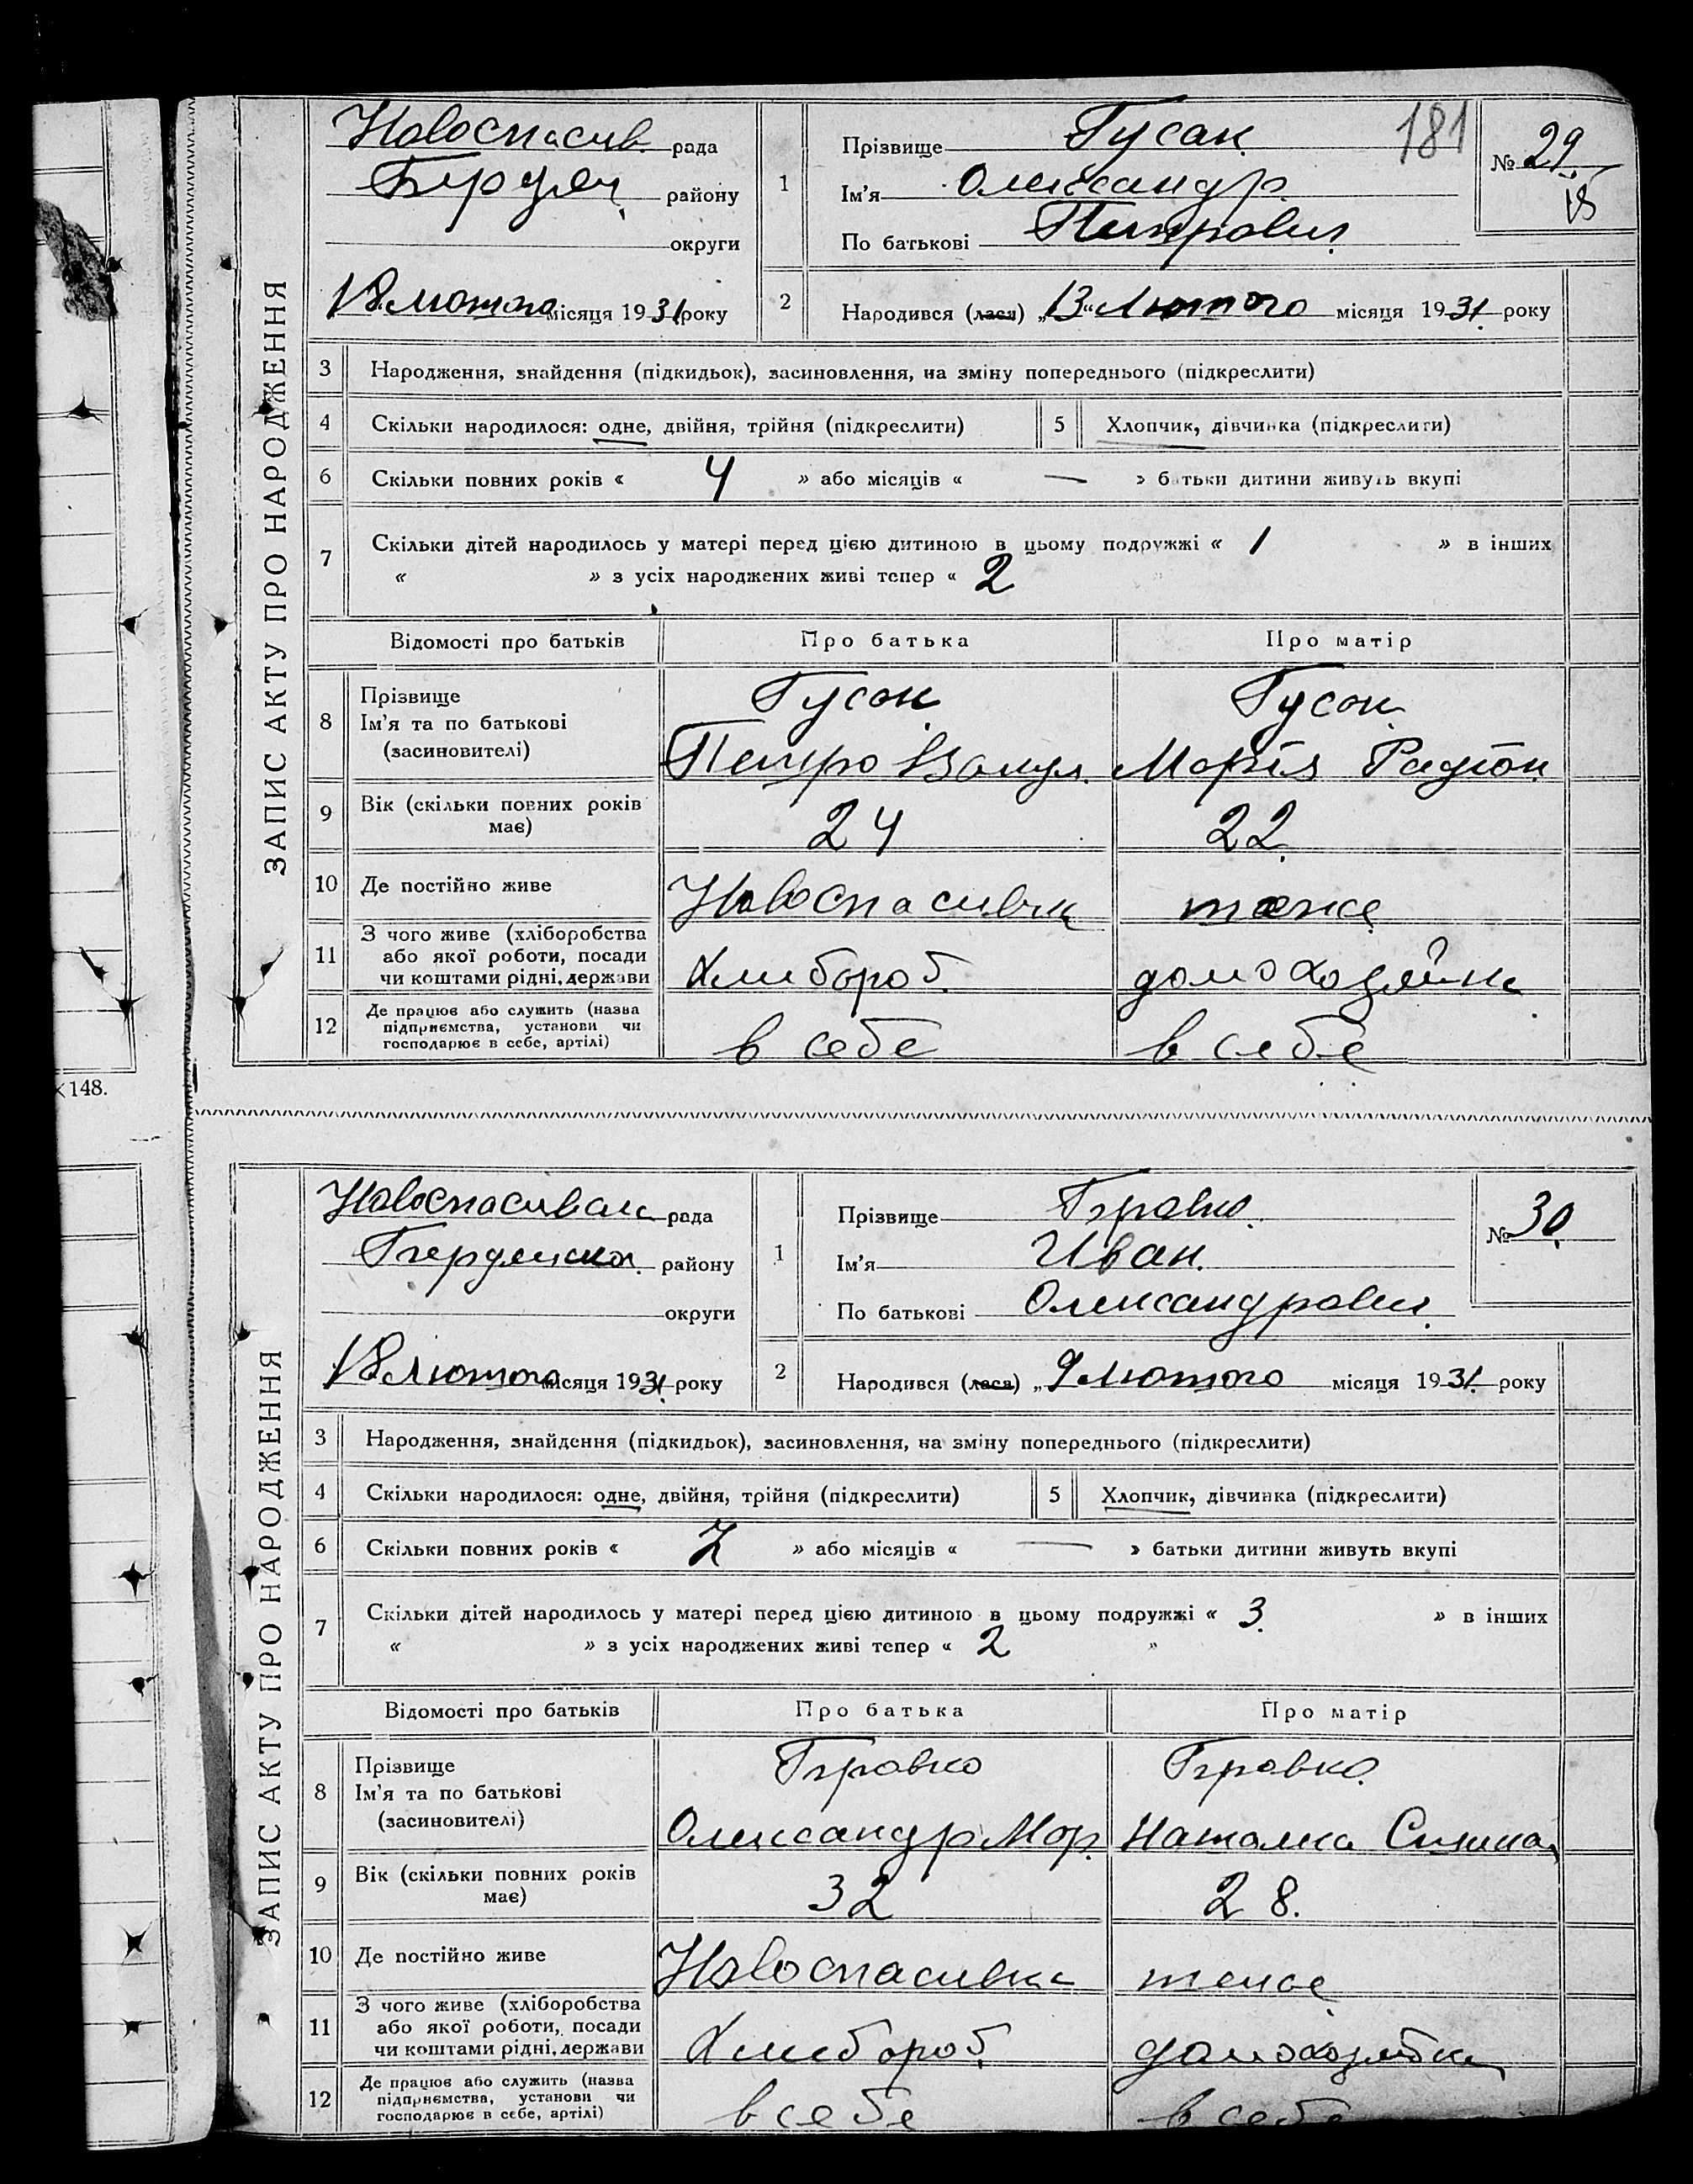 ЗАПИС АКТУ ПРО НАРОДЖЕННЯ
Новоспасив. рада
Бердян. району
округи
18 лютого місяця 1931 року
181
№ 29
18
1 Прізвище Гусак
Ім'я Олександр
По батькові Петрович
2 Народився (лася) „13“ Лютого місяця 1931 року
3 Народження, знайдення (підкидьок), засиновлення, на зміну попереднього (підкреслити)
4 Скільки народилося: одне, двійня, трійня (підкреслити) 5 Хлопчик, дівчинка (підкреслити)
6 Скільки повних років « 4 » або місяців « — » батьки дитини живуть вкупі
7 Скільки дітей народилось у матері перед цією дитиною в цьому подружжі « 1 » в інших
« » з усіх народжених живі тепер « 2
Відомості про батьків Про батька Про матір
8 Прізвище Гусак Гусак
Ім'я та по батькові
(засиновителі) Петро Марія Радіон
9 Вік (скільки повних років має) 24 22
10 Де постійно живе Новоспасивка тоже
11 З чого живе (хліборобства або якої роботи, посади чи коштами рідні, держави Хлибороб. домохозяйка
12 Де працює або служить (назва підприємства, установи чи господарює в себе, артілі) в себе в себе
×148.
ЗАПИС АКТУ ПРО НАРОДЖЕННЯ
Новоспасивская рада
Бердянска району
округи
18 Лютого місяця 1931 року
№ 30
1 Прізвище
Ім'я Иван.
По батькові Олександрович
2 Народився (лася) „9 лютого місяця 1931 року
3 Народження, знайдення (підкидьок), засиновлення, на зміну попереднього (підкреслити)
4 Скільки народилося: одне, двійня, трійня (підкреслити) 5 Хлопчик, дівчинка (підкреслити)
6 Скільки повних років « 7 » або місяців « — » батьки дитини живуть вкупі
7 Скільки дітей народилось у матері перед цією дитиною в цьому подружжі « 3 » в інших
« » з усіх народжених живі тепер « 2 »
Відомості про батьків Про батька Про матір
8 Прізвище
Ім'я та по батькові
(засиновителі) Олександр Мар. Наталка
9 Вік (скільки повних років має) 32 28.
10 Де постійно живе Новоспасивка тоже
11 З чого живе (хліборобства або якої роботи, посади чи коштами рідні, держави Хлибороб. домохозяйка
12 Де працює або служить (назва підприємства, установи чи господарює в себе, артілі) в себе в себе